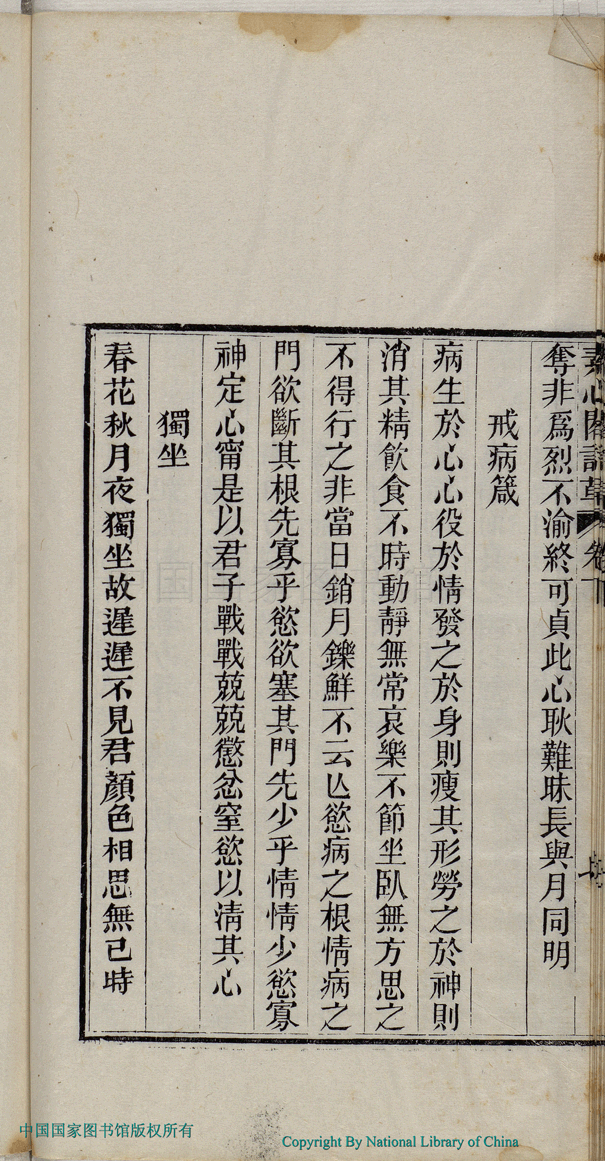 素心閣詩草 卷下
奪非爲烈不渝終可貞此心耿難昧長與月同明
戒病箴
病生於心心役於情發之於身則瘦其形勞之於神則
消其精飲食不時動靜無常哀樂不節坐臥無方思之
不得行之非當日銷月鑠鮮不云亾慾病之根情病之
門欲斷其根先寡乎慾欲塞其門先少乎情情少慾寡
神定心甯是以君子戰戰兢兢懲忿窒慾以淸其心
獨坐
春花秋月夜獨坐故遲遲不見君顏色相思無已時
中国国家图书馆版权所有
Copyright By National Library of China